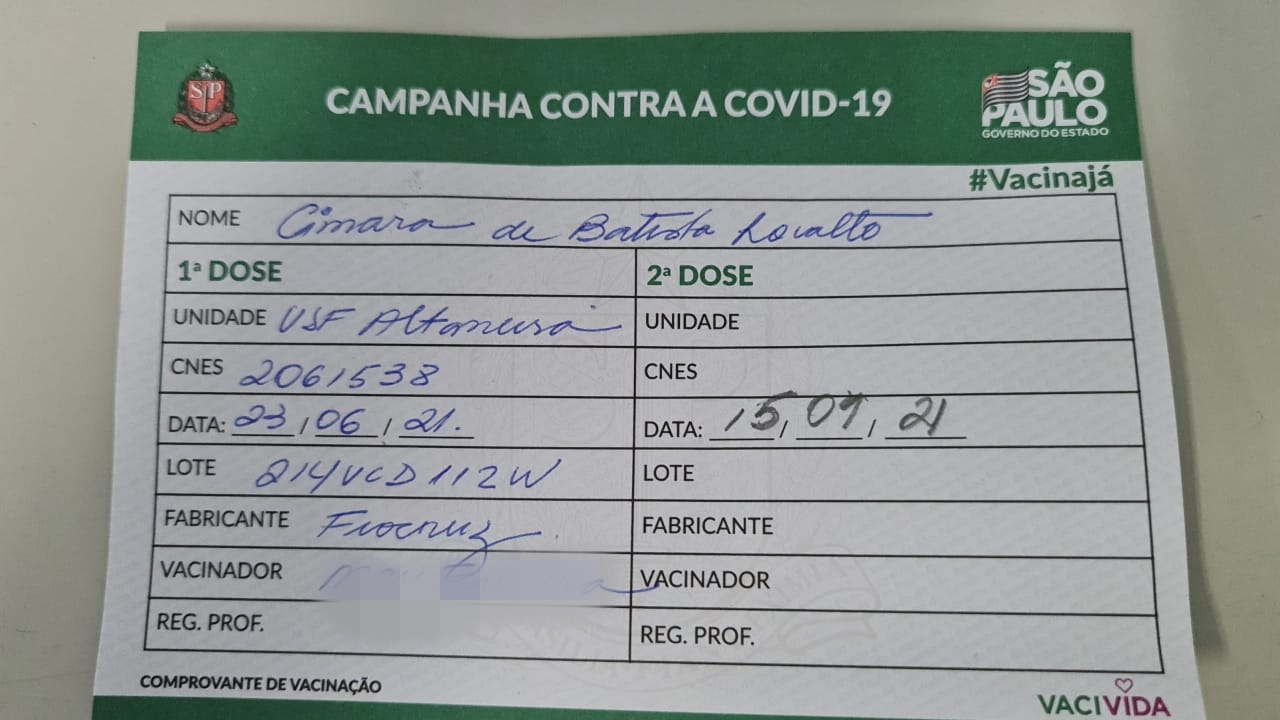 SP
CAMPANHA CONTRA A COVID-19
SÃO PAULO
GOVERNO DO ESTADO
#Vacinajá
NOME Cimara de Batista Lovatto
1ª DOSE
2ª DOSE
UNIDADE USF Altaneira
UNIDADE
CNES 2061538
CNES
DATA: 23/06/21.
DATA: 15/09/21
LOTE 214VCD112W
LOTE
FABRICANTE Fiocruz
FABRICANTE
VACINADOR
VACINADOR
REG. PROF.
REG. PROF.
COMPROVANTE DE VACINAÇÃO
VACIVIDA